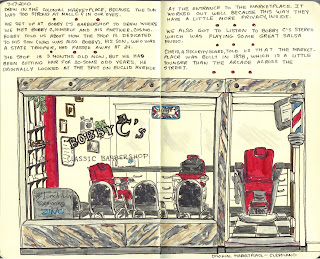 DREW IN THE COLONIAL MARKETPLACE, BECAUSE THE SUN
WAS TOO STRONG AT MALLEY'S IN OUR EYES.
WE SAT AT BOBBY C'S BARBERSHOP TO DRAW WHERE
WE MET BOBBY C, HIMSELF AND HIS PARTNER,
WHO TOLD US ABOUT HOW THE SHOP IS DEDICATED
TO HIS SON, WHO WAS ALSO BOBBY, HIS SON, WHO WAS
A STATE TROOPER, HAD PASSED AWAY AT 27.
THE SHOP IS 3 MONTHS OLD NOW, BUT HE HAS
BEEN CUTTING HAIR FOR 30-SOME ODD YEARS. HE
ORIGINALLY LOOKED AT THE SPOT ON EUCLID AVENUE
AT THE ENTRANCE TO THE MARKETPLACE. IT
WORKED OUT WELL BECAUSE THIS WAY THEY
HAVE A LITTLE MORE PRIVACY, INSIDE.
WE ALSO GOT TO LISTEN TO BOBBY C'S STEREO
WHICH WAS PLAYING SOME GREAT SALSA
TOLD US THAT THE MARKET-
PLACE WAS BUILT IN 1898, WHICH IS A LITTLE
YOUNGER THAN THE ARCADE ACROSS THE
STREET.
BOBBY C's
CLASSIC BARBERSHOP
MARKETPLACE - CLEVELAND